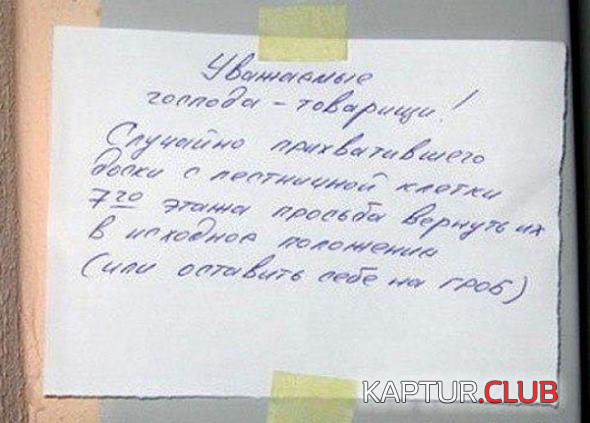 Уважаемые
господа - товарищи!
Случайно прихватившего
доски с лестничной клетки
7го этажа просьба вернуть их
в исходное положении
(или оставить себе на гроб)
KAPTUR.CLUB